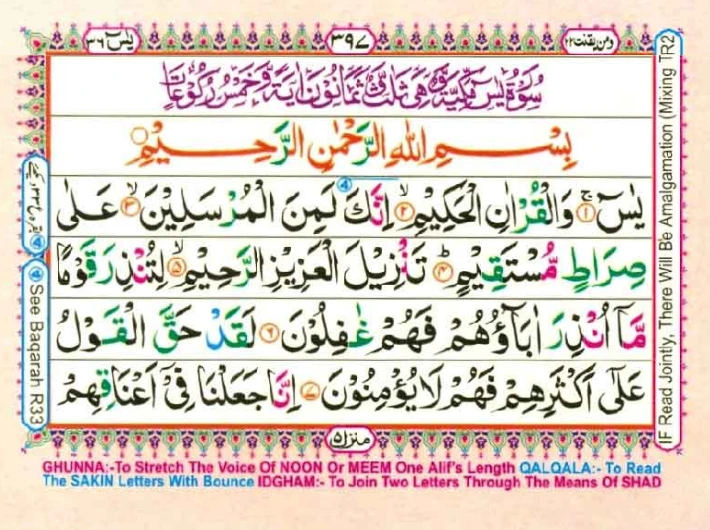 يٰسٓ ٣٦
٣٩٧
ومن يقنت ٢٢
سُوْرَةُ يٰسٓ مَكِّيَّةٌ وَّهِيَ ثَلٰثٌ وَّثَمَانُوْنَ اٰيَةً وَّخَمْسُ رُكُوْعَاتٍ
بِسْمِ اللّٰهِ الرَّحْمٰنِ الرَّحِيْمِ
يٰسٓ ﴿١﴾ وَالْقُرْاٰنِ الْحَكِيْمِ ﴿٢﴾ اِنَّكَ لَمِنَ الْمُرْسَلِيْنَ ﴿٣﴾ عَلٰى
صِرَاطٍ مُّسْتَقِيْمٍ ﴿٤﴾ تَنْزِيْلَ الْعَزِيْزِ الرَّحِيْمِ ﴿٥﴾ لِتُنْذِرَ قَوْمًا
مَّاۤ اُنْذِرَ اٰبَآؤُهُمْ فَهُمْ غٰفِلُوْنَ ﴿٦﴾ لَقَدْ حَقَّ الْقَوْلُ
عَلٰٓى اَكْثَرِهِمْ فَهُمْ لَا يُؤْمِنُوْنَ ﴿٧﴾ اِنَّا جَعَلْنَا فِيْٓ اَعْنَاقِهِمْ
منزل ٥
See Baqarah R33
IF Read Jointly, There Will Be Amalgamation (Mixing TR2
GHUNNA:-To Stretch The Voice Of NOON Or MEEM One Alif's Length QALQALA:- To Read
The SAKIN Letters With Bounce IDGHAM:- To Join Two Letters Through The Means Of SHAD